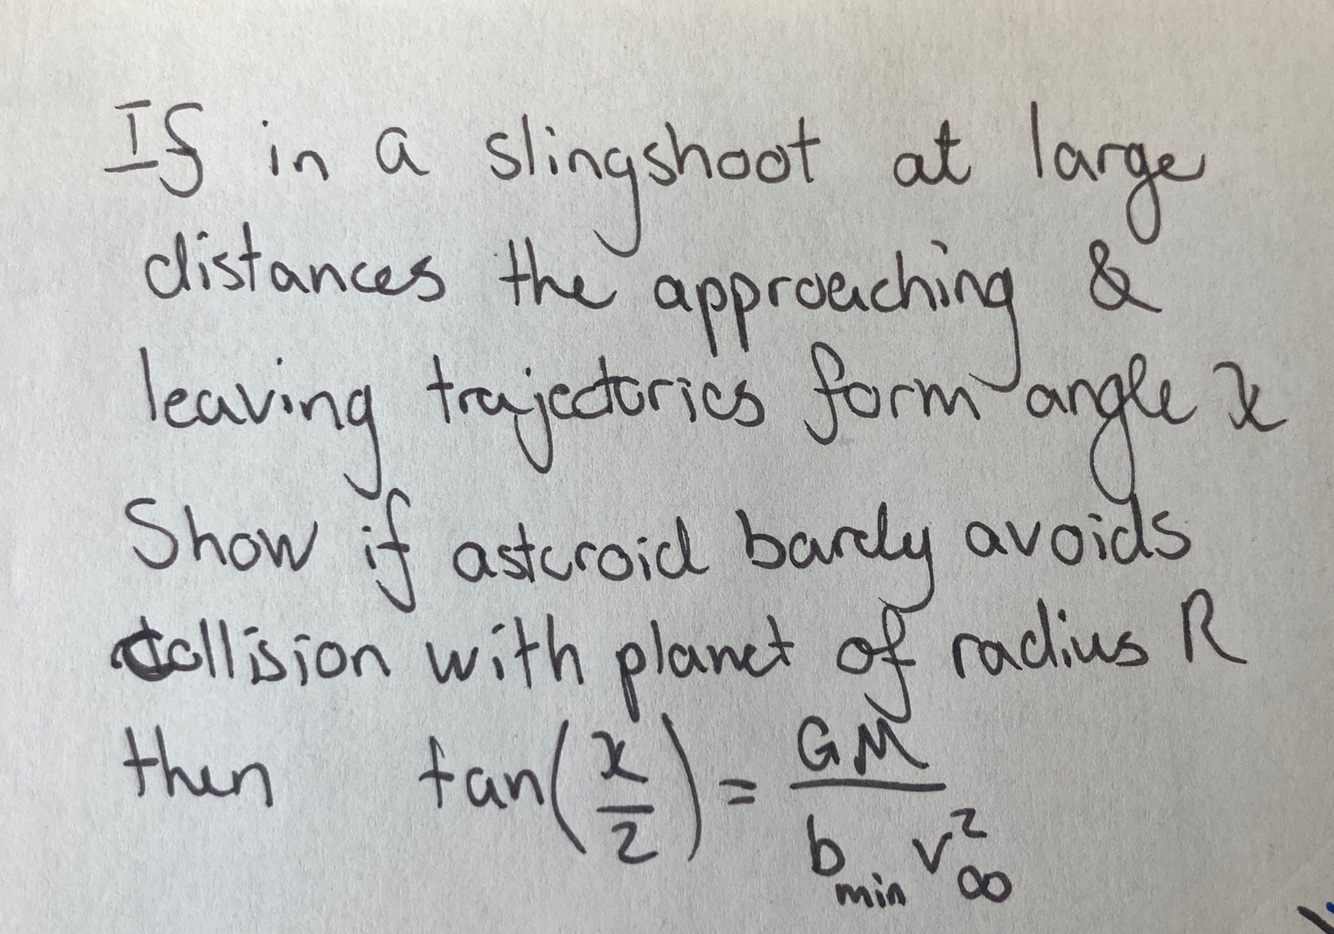 If in a slingshoot at large
distances the approaching &
leaving trajectories form angle χ
Show if asteroid barely avoids
collision with planet of radius R
then tan(χ/2) = GM/(b_min v_∞^2)